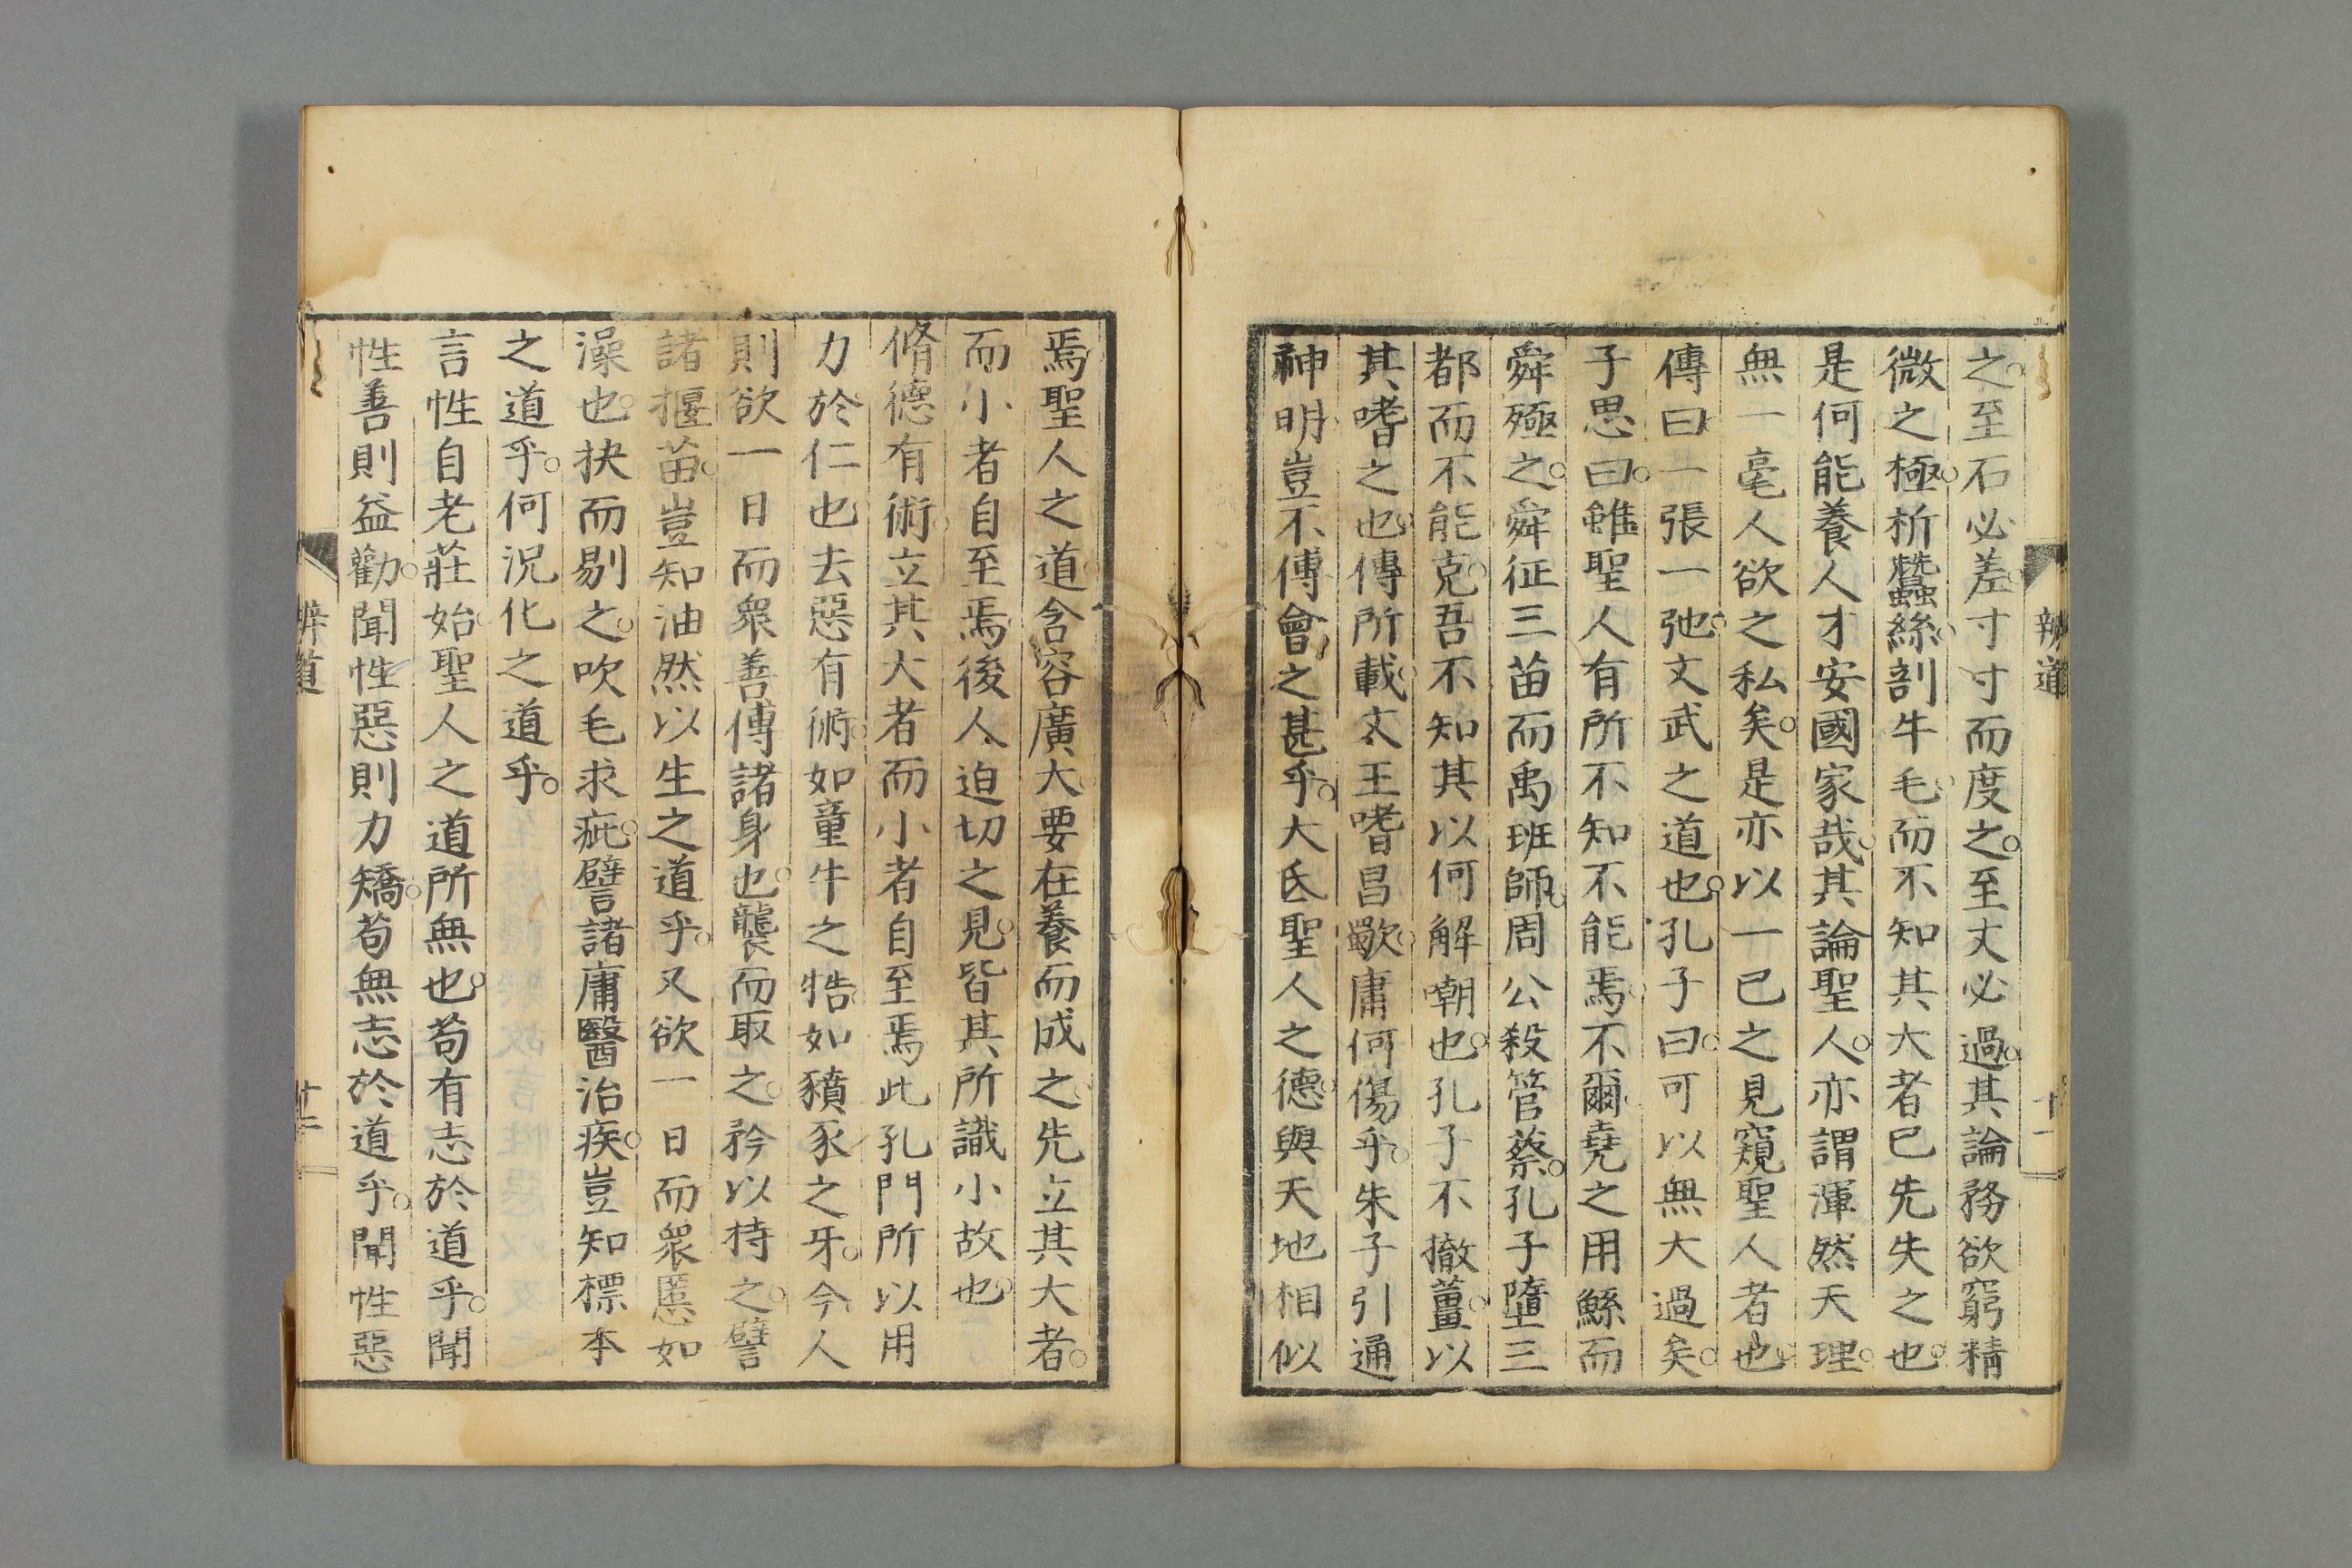 辨道
十一
之。至石必差。寸寸而度之。至丈必過。其論務欲窮精
微之極。析蠶絲。剖牛毛。而不知其大者已先失之也。
是何能養人才安國家哉。其論聖人。亦謂渾然天理。
無一毫人欲之私矣。是亦以一己之見窺聖人者也。
傳曰一張一弛。文武之道也。孔子曰。可以無大過矣。
子思曰。雖聖人有所不知不能焉。不爾堯之用鯀而
舜殛之。舜征三苗而禹班師。周公殺管蔡。孔子墮三
都而不能克。吾不知其以何解嘲也。孔子不撤薑。以
其嗜之也。傳所載。文王嗜昌歜。庸何傷乎。朱子引通
神明。豈不傅會之甚乎。大氐聖人之德。與天地相似
焉聖人之道。含容廣大。要在養而成之。先立其大者。
而小者自至焉。後人迫切之見。皆其所識小故也。
脩德有術。立其大者而小者自至焉此孔門所以用
力於仁也。去惡有術。如童牛之牿。如豶豕之牙。今人
則欲一日而衆善傳諸身也。襲而取之。矜以持之。譬
諸揠苗。豈知油然以生之道乎。又欲一日而衆慝如
澡也。抉而剔之。吹毛求疵。譬諸庸醫治疾。豈知標本
之道乎。何況化之道乎。
言性自老莊始。聖人之道所無也。苟有志於道乎。聞
性善則益勸。聞性惡則力矯。苟無志於道乎。聞性惡
辨道
十二